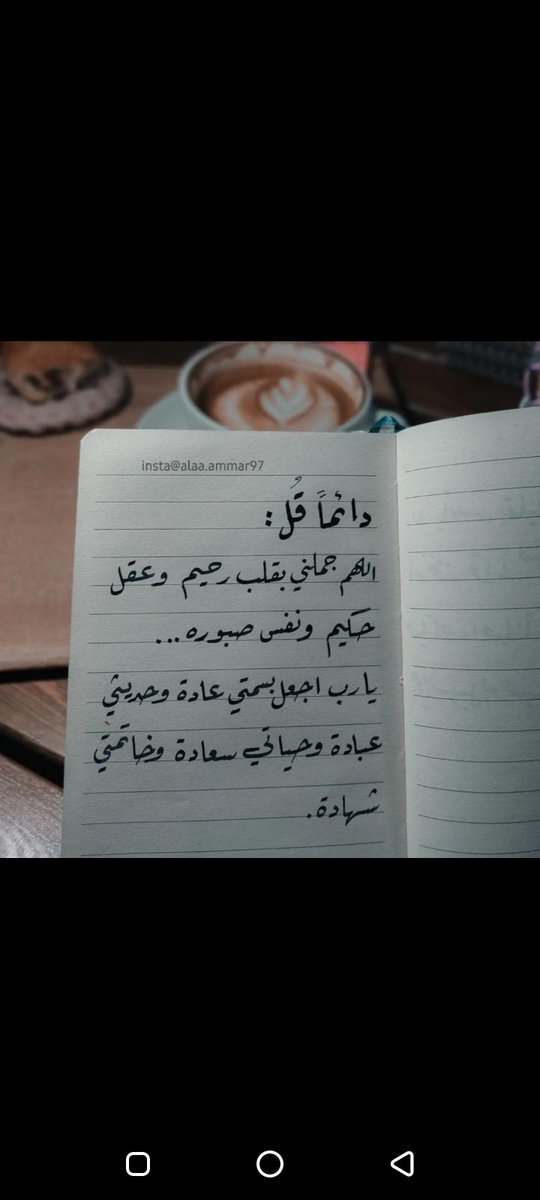 insta@alaa.ammar97
دائماً قُل:
اللهم جملني بقلب رحيم وعقل
حكيم ونفس صبوره...
يارب اجعل بسمتي عادة وحديثي
عبادة وحياتي سعادة وخاتمتي
شهادة.